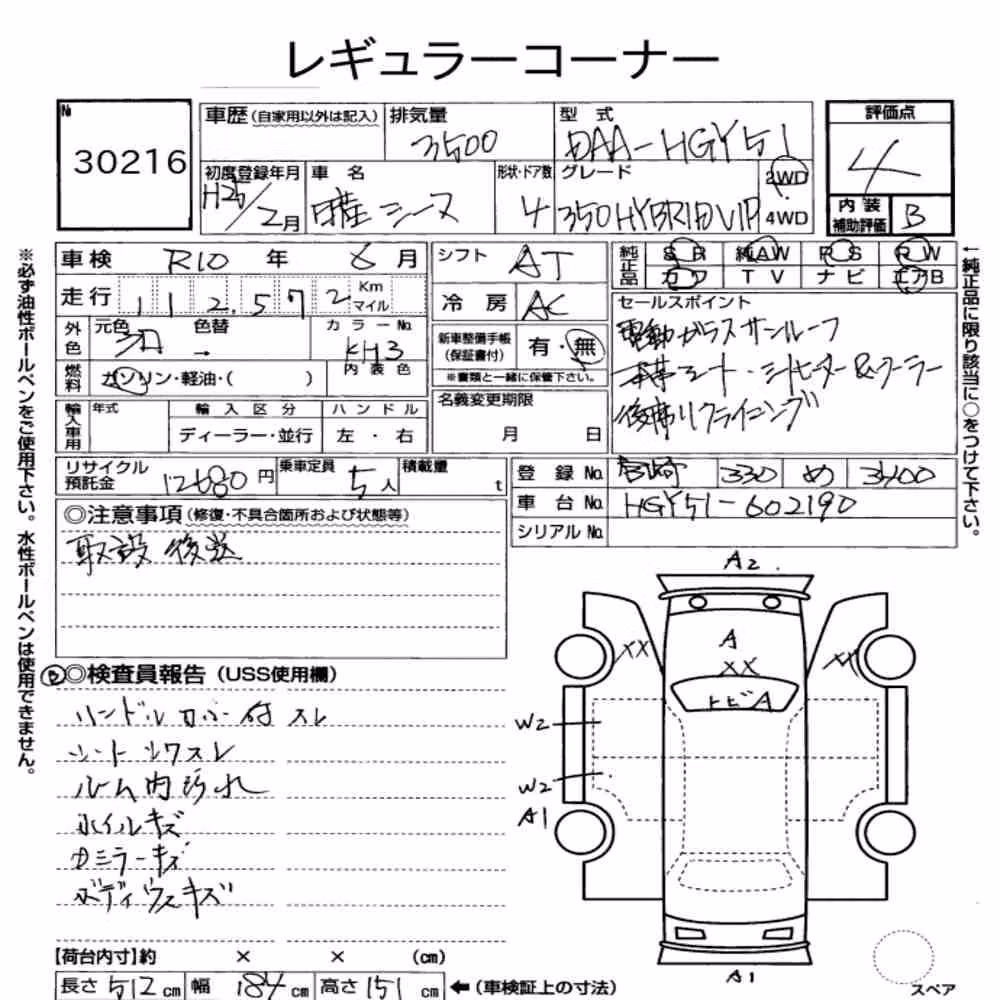 レギュラーコーナー
№ 30216
車歴(自家用以外は記入) 排気量 3500 型式 DAA-HGY51
初度登録年月 H25/2月 車名 日産 シーマ 形状・ドア数 4 グレード 350HYBRIDVIP 2WD 4WD
評価点 4
内装補助評価 B
車検 R10 年 6 月
走行 112.572 Km マイル
外色 元色 色替 → カラーNo. KH3
燃料 ガソリン・軽油・( ) 内装色
輸入車用 年式 輸入区分 ディーラー・並行 ハンドル 左・右
シフト AT
冷房 AC
新車整備手帳(保証書付) 有・無
※書類と一緒に保管下さい。
名義変更期限 月 日
純正品 SR 純AW PS PW
カワ TV ナビ エアB
セールスポイント
電動ガラスサンルーフ
本革シート・シートヒーター&クーラー
後席リクライニング
リサイクル預託金 12680円 乗車定員 5人 積載量 t
登録No. 宮崎 330 め 3400
車台No. HGY51-602190
シリアルNo.
◎注意事項(修復・不具合箇所および状態等)
取説 後送
◎検査員報告(USS使用欄)
ハンドルカバー付 スレ
シート シワスレ
ルーム内汚れ
ホイルキズ
Dミラーキズ
ボディウスキズ
A2
A
XX
XX
XX
トビA
W2
W2
A1
A1
スペア
【荷台内寸】約 × × (cm)
長さ 512 cm 幅 184 cm 高さ 151 cm ←(車検証上の寸法)
※必ず油性ボールペンをご使用下さい。水性ボールペンは使用できません。
←純正品に限り該当に○をつけて下さい。